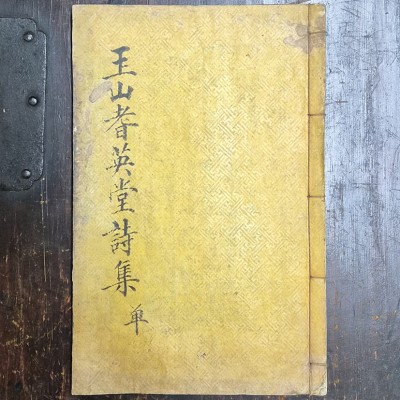 王山耆英堂詩集
单